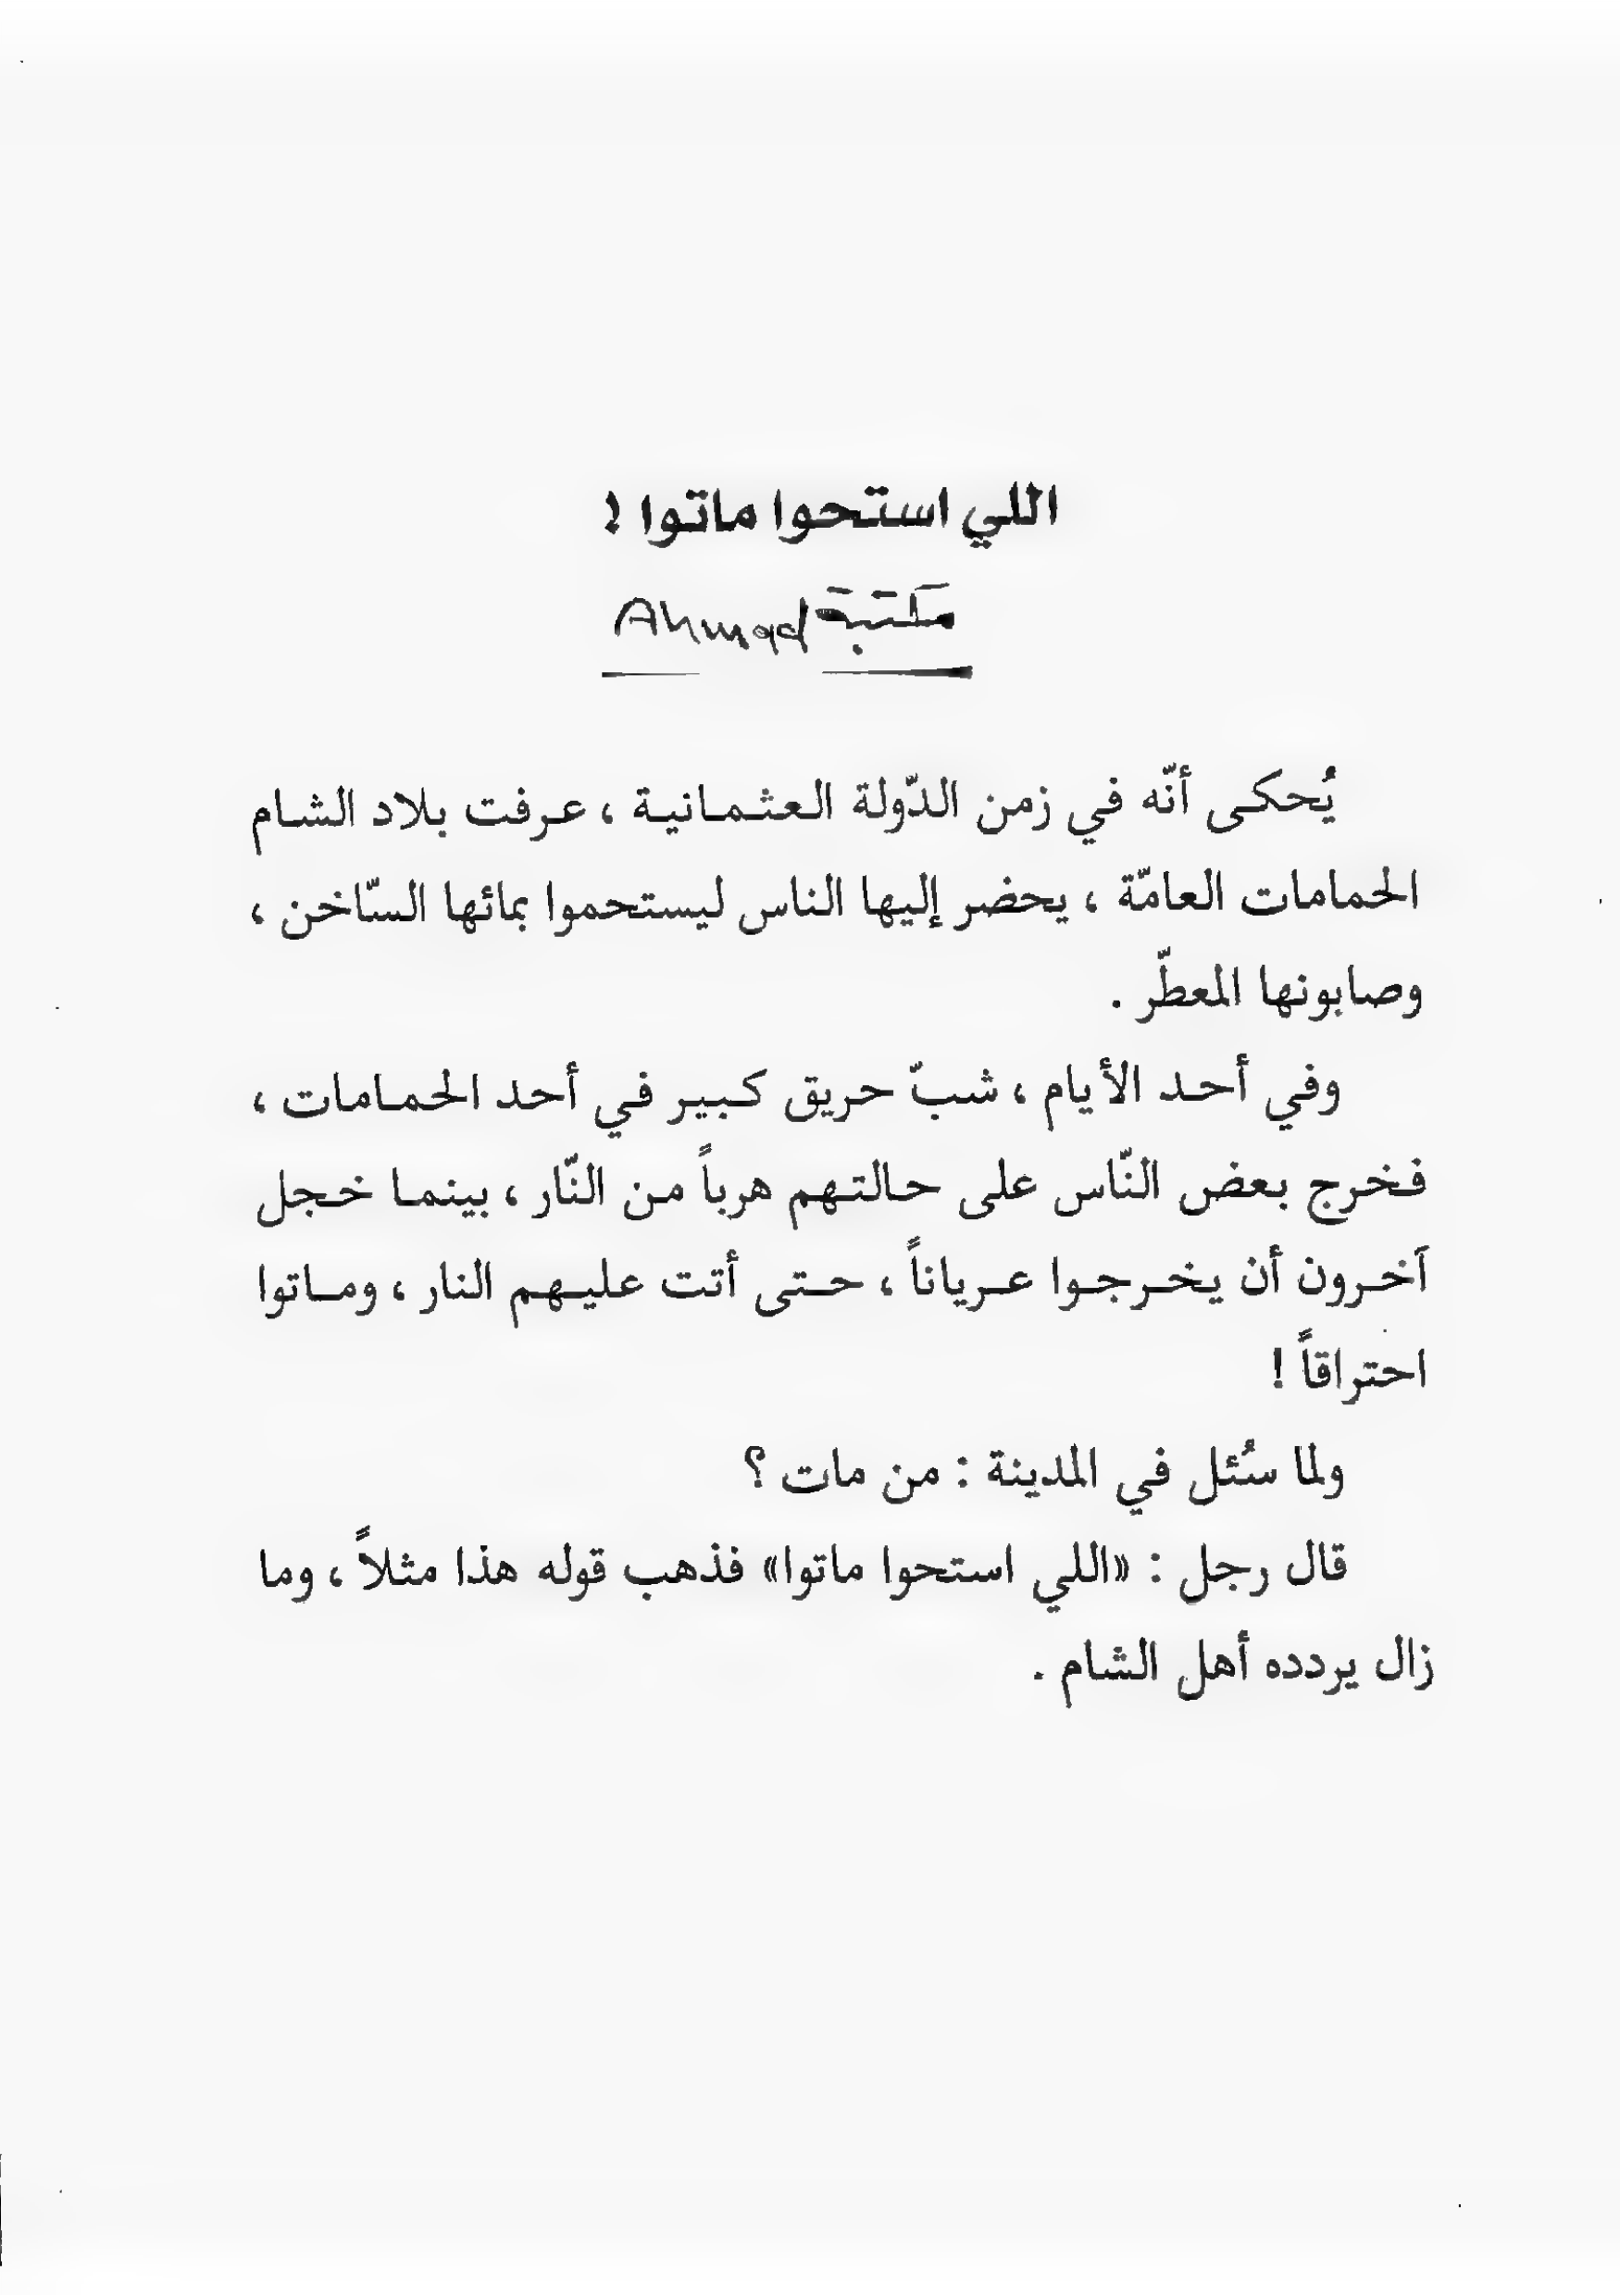 اللي استحوا ماتوا !
مكتبة Ahmad
يُحكى أنّه في زمن الدّولة العثمانية ، عرفت بلاد الشام
الحمامات العامّة ، يحضر إليها الناس ليستحموا بمائها السّاخن ،
وصابونها المعطّر .
وفي أحد الأيام ، شبّ حريق كبير في أحد الحمامات ،
فخرج بعض النّاس على حالتهم هرباً من النّار ، بينما خجل
آخرون أن يخرجوا عرياناً ، حتى أتت عليهم النار ، وماتوا
احتراقاً !
ولما سُئل في المدينة : من مات ؟
قال رجل : «اللي استحوا ماتوا» فذهب قوله هذا مثلاً ، وما
زال يردده أهل الشام .